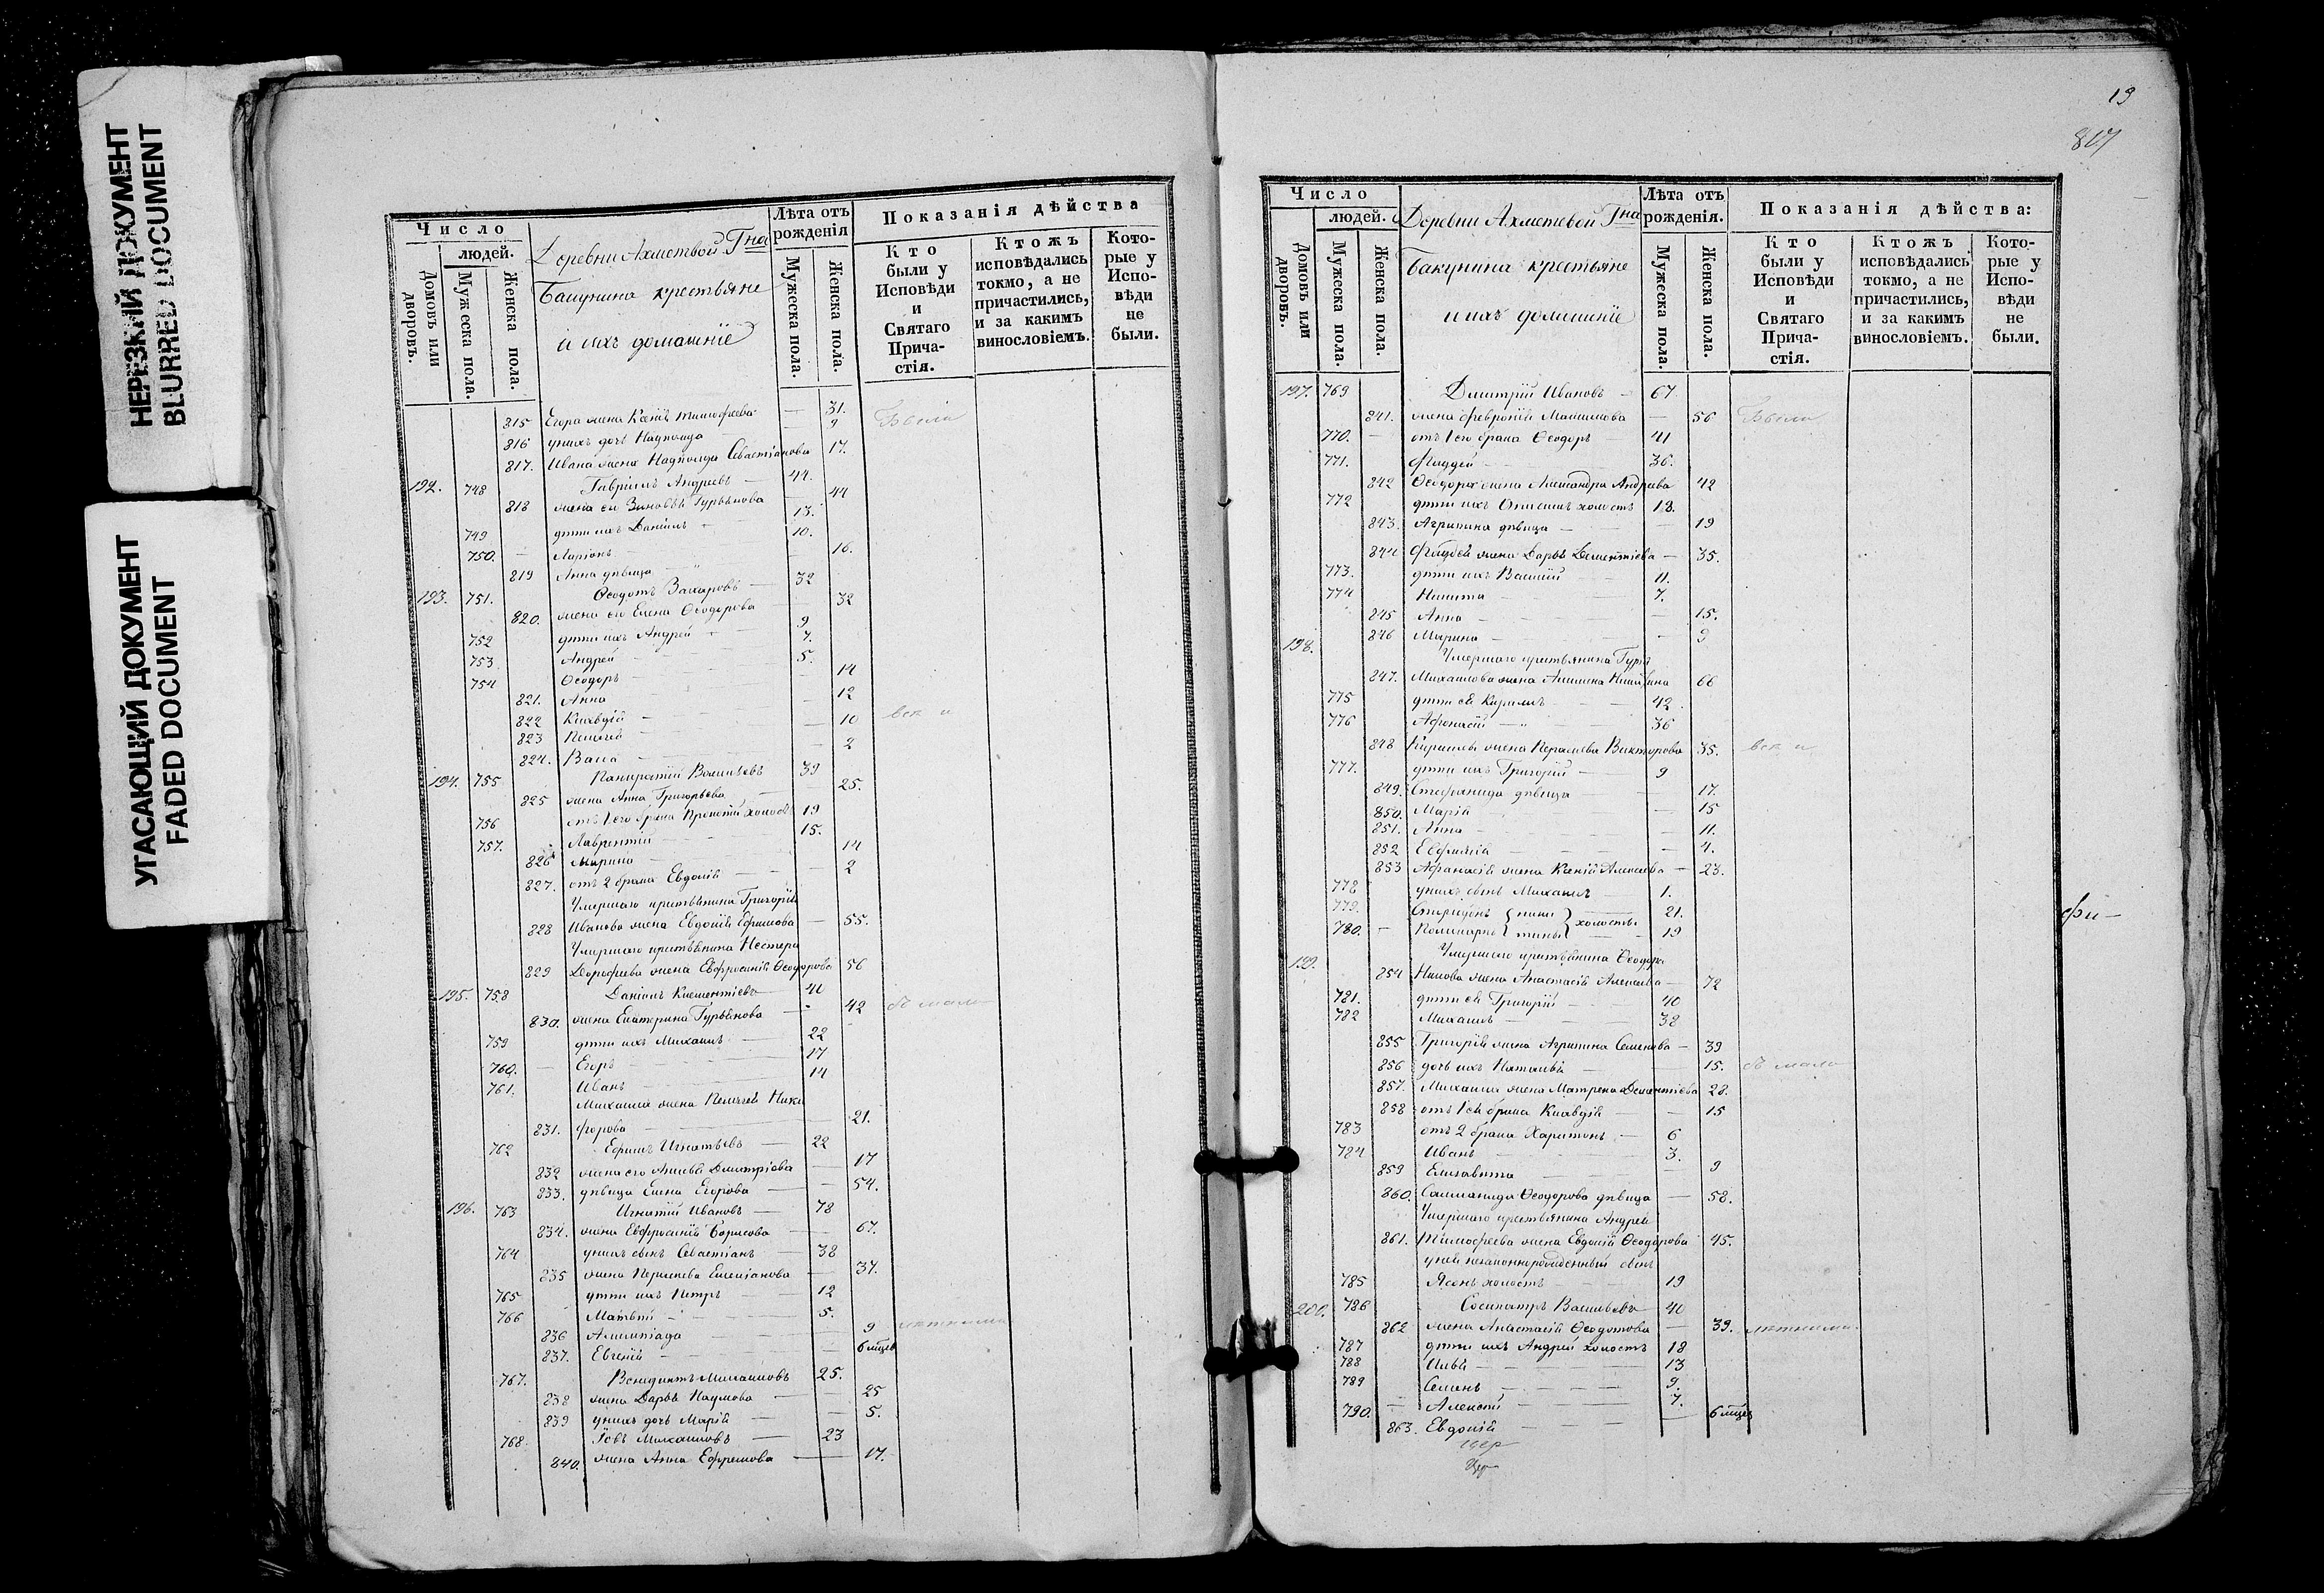 НЕРЕЗКИЙ ДОКУМЕНТ
BLURRED DOCUMENT
УГАСАЮЩИЙ ДОКУМЕНТ
FADED DOCUMENT
Число
людей.
Домовъ или дворовъ.
Мужеска пола.
Женска пола.
Деревни Ахметевой Гна
Бакунина крестьяне
и ихъ домашніе
Лѣта отъ рожденія
Мужеска пола.
Женска пола.
Показанія дѣйства
Кто были у Исповѣди и Святаго Причастія.
Ктожъ исповѣдались токмо, а не причастились, и за какимъ винословіемъ.
Которые у Исповѣди не были.
815 Егора жена Ксенія Тимофеева — 31. Были
816 у нихъ дочь Надежда — 9
817. Ивана жена Надежда Севастіанова 17.
192. 748 Гавріилъ Андреевъ — 44.
818 жена его Зиновья Гурьянова 44
749 дѣти ихъ Даніилъ — 13.
750. — Ларіонъ — 10.
819 Анна дѣвица — 16.
193. 751. Ѳеодотъ Захаровъ — 32
820. жена его Елена Ѳеодорова — 32
752 дѣти ихъ Андрей — 9
753 Андрей — 7.
754 Ѳеодоръ — 5.
821. Анна — 14
822 Клавдія — 12
823 Пелагея — 10
824. Васса — 2
194. 755 Панкратій Васильевъ 39
825 жена Анна Григорьева — 25.
756 отъ 1 его брака Прокопій холостъ 19
757. Лаврентій — 15.
826 Марина — 14
827. отъ 2 брака Евдокія — 2
Умершаго крестьянина Григорія
828 Иванова жена Евдокія Ефимова — 55.
Умершаго крестьянина Нестера
829 Дорофеева жена Евфросинія Ѳеодорова 56
195. 758 Даніилъ Климентіевъ 40
830. жена Екатерина Гурьянова — 42
759 дѣти ихъ Михаилъ — 22
760. — Егоръ — 17
761. Иванъ — 14
Михаила жена Пелагея Ники
831. форова — 21.
762 Ефимъ Игнатьевъ — 22
832 жена его Дмитріева — 17
833. дѣвица Елена Егорова — 54.
196. 763 Игнатій Ивановъ — 78
834. жена Евфросинія Борисова — 67.
764 у нихъ сынъ Севастіанъ — 38
835 жена 37.
765 дѣти ихъ Петръ — 12
766 Матвѣй — 5.
836 Алимпіада — 9
837. Евгенія — 6 мѣсец
767. Венедиктъ Михайловъ 25.
838 жена Дарья Наумова — 25
839 у нихъ дочь Марія — 5.
768 Іовъ Михайловъ — 23
840. жена Анна Ефремова — 17.
19
807
Число
людей.
Домовъ или дворовъ.
Мужеска пола.
Женска пола.
Деревни Ахметевой Гна
Бакунина крестьяне
и ихъ домашніе
Лѣта отъ рожденія.
Мужеска пола.
Женска пола.
Показанія дѣйства:
Кто были у Исповѣди и Святаго Причастія.
Ктожъ исповѣдались токмо, а не причастились, и за какимъ винословіемъ.
Которые у Исповѣди не были.
197. 769 Дмитрій Ивановъ — 67
841. жена Февронія Максимова — 56 Были
770. — отъ 1 его брака Ѳеодоръ 41
771. Фаддей — 36.
842 Ѳеодора жена Александра Андреева 42
772 дѣти ихъ холостъ 18.
843. Агрипина дѣвица — 19
844 Фаддея жена Дарья — 35.
773. дѣти ихъ Василій 11.
774 Никита — 7.
845 Анна — 15.
846 Марина — 9
198. Умершаго крестьянина Гурія
847. Михайлова жена Никитина 66
775 дѣти ея Кирилъ — 42.
776 Афонасій — 36
848 Кирилы жена Викторова 35.
777. дѣти ихъ Григорій — 9
849. Стефанида дѣвица — 17.
850. Марія — 15
851. Анна — 11.
852 Евфимія — 4.
853 Афанасія жена Ксенія Алексеева — 23.
778 у нихъ сынъ Михаилъ — 1.
779. Спиридонъ 21.
780. — Поликарпъ холосты 19
фи—
199. Умершаго крестьянина Ѳеодора
854 жена Анастасія Алексеева — 72
781. дѣти ея Григорій — 40
782 Михаилъ — 38
855 Григорія жена Агрипина Семенова — 39
856 дочь ихъ Наталья — 15.
857. Михаила жена Матрена Дементіева 28.
858 отъ 1 ея брака Клавдія — 15
783 отъ 2 брака Харитонъ — 6
784 Иванъ — 3.
859 Елизавета — 9
860. Ѳеодорова дѣвица — 58.
Умершаго крестьянина Андрея
861. Тимофеева жена Евдокія Ѳеодорова 45.
у ней незаконнорожденный сынъ
785 холостъ — 19
200. 786 Сосипатръ Васильевъ 40
862 жена Анастасія Ѳеодотова — 39.
787 дѣти ихъ Андрей холостъ 18
788 Илья — 13
789 Семенъ — 9.
790. — Алексѣй — 7.
863. Евдокія — 6 мѣсец